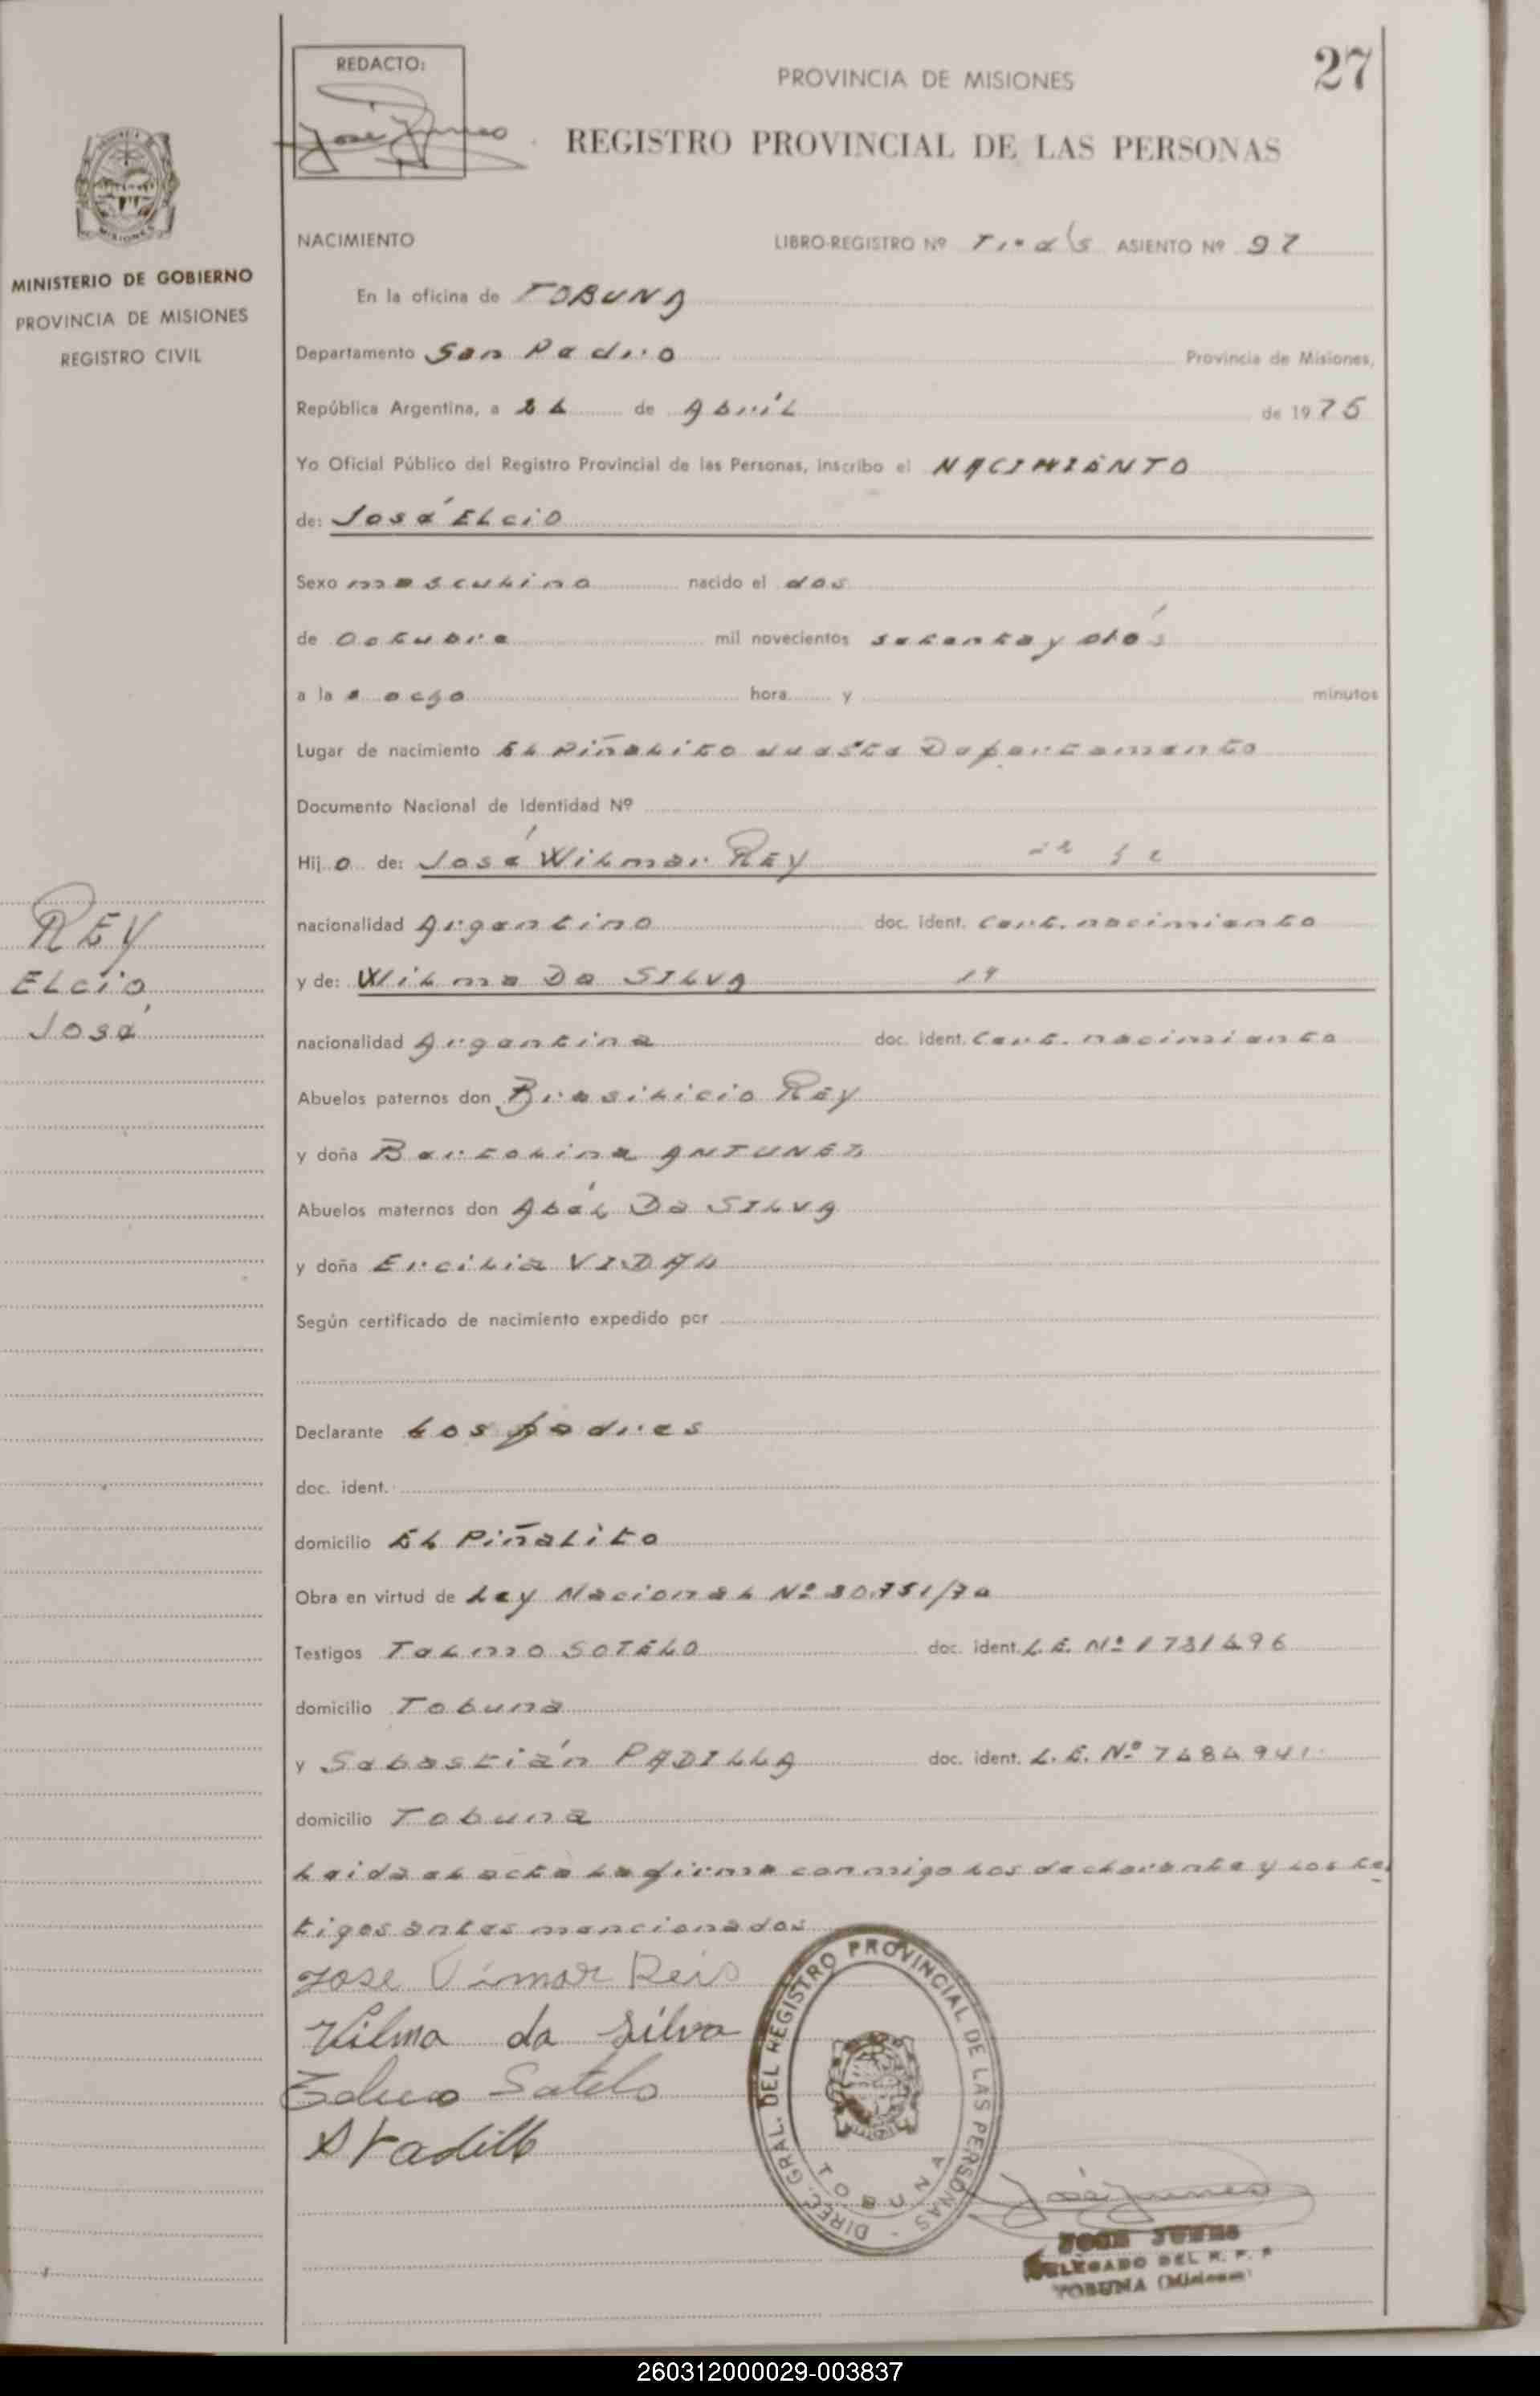 27
REDACTO:
PROVINCIA DE MISIONES
REGISTRO PROVINCIAL DE LAS PERSONAS
MISIONES
MINISTERIO DE GOBIERNO
PROVINCIA DE MISIONES
REGISTRO CIVIL
NACIMIENTO LIBRO-REGISTRO Nº ASIENTO Nº 97
En la oficina de TOBUNA
Departamento San Pedro Provincia de Misiones,
República Argentina, a de Abril de 1975
Yo Oficial Público del Registro Provincial de las Personas, inscribo el NACIMIENTO
de: José ELciO
Sexo masculino nacido el dos
de Octubre mil novecientos setenta y
a las ocho hora y minutos
Lugar de nacimiento El Piñalito Departamento
Documento Nacional de Identidad Nº
Hijo de: José Wilmar REY
REY
ELciO
José
nacionalidad Argentino doc. ident. Cert. nacimiento
y de: Wilma Da SILVA 19
nacionalidad Argentina doc. ident. Cert. nacimiento
Abuelos paternos don Brasilicio REY
y doña Bartolina ANTUNEZ
Abuelos maternos don Abél Da SILVA
y doña Ercilia VIDAL
Según certificado de nacimiento expedido por
Declarante Los padres
doc. ident.
domicilio El Piñalito
Obra en virtud de Ley Nacional Nº
Testigos Telmo SOTELO doc. ident. L.E. Nº 1731496
domicilio Tobuna
y Sebastián PADILLA doc. ident. L.E. Nº 7484941
domicilio Tobuna
Leida el acta la firma conmigo los declarante y los tes
tigos antes mencionados
Jose Vimar Reis
Vilma da Silva
Sotelo
S Padilla
DIREC. GRAL. DEL REGISTRO PROVINCIAL DE LAS PERSONAS -
TOBUNA
DELEGADO DEL R. P. P
TOBUNA (Misiones)
260312000029-003837